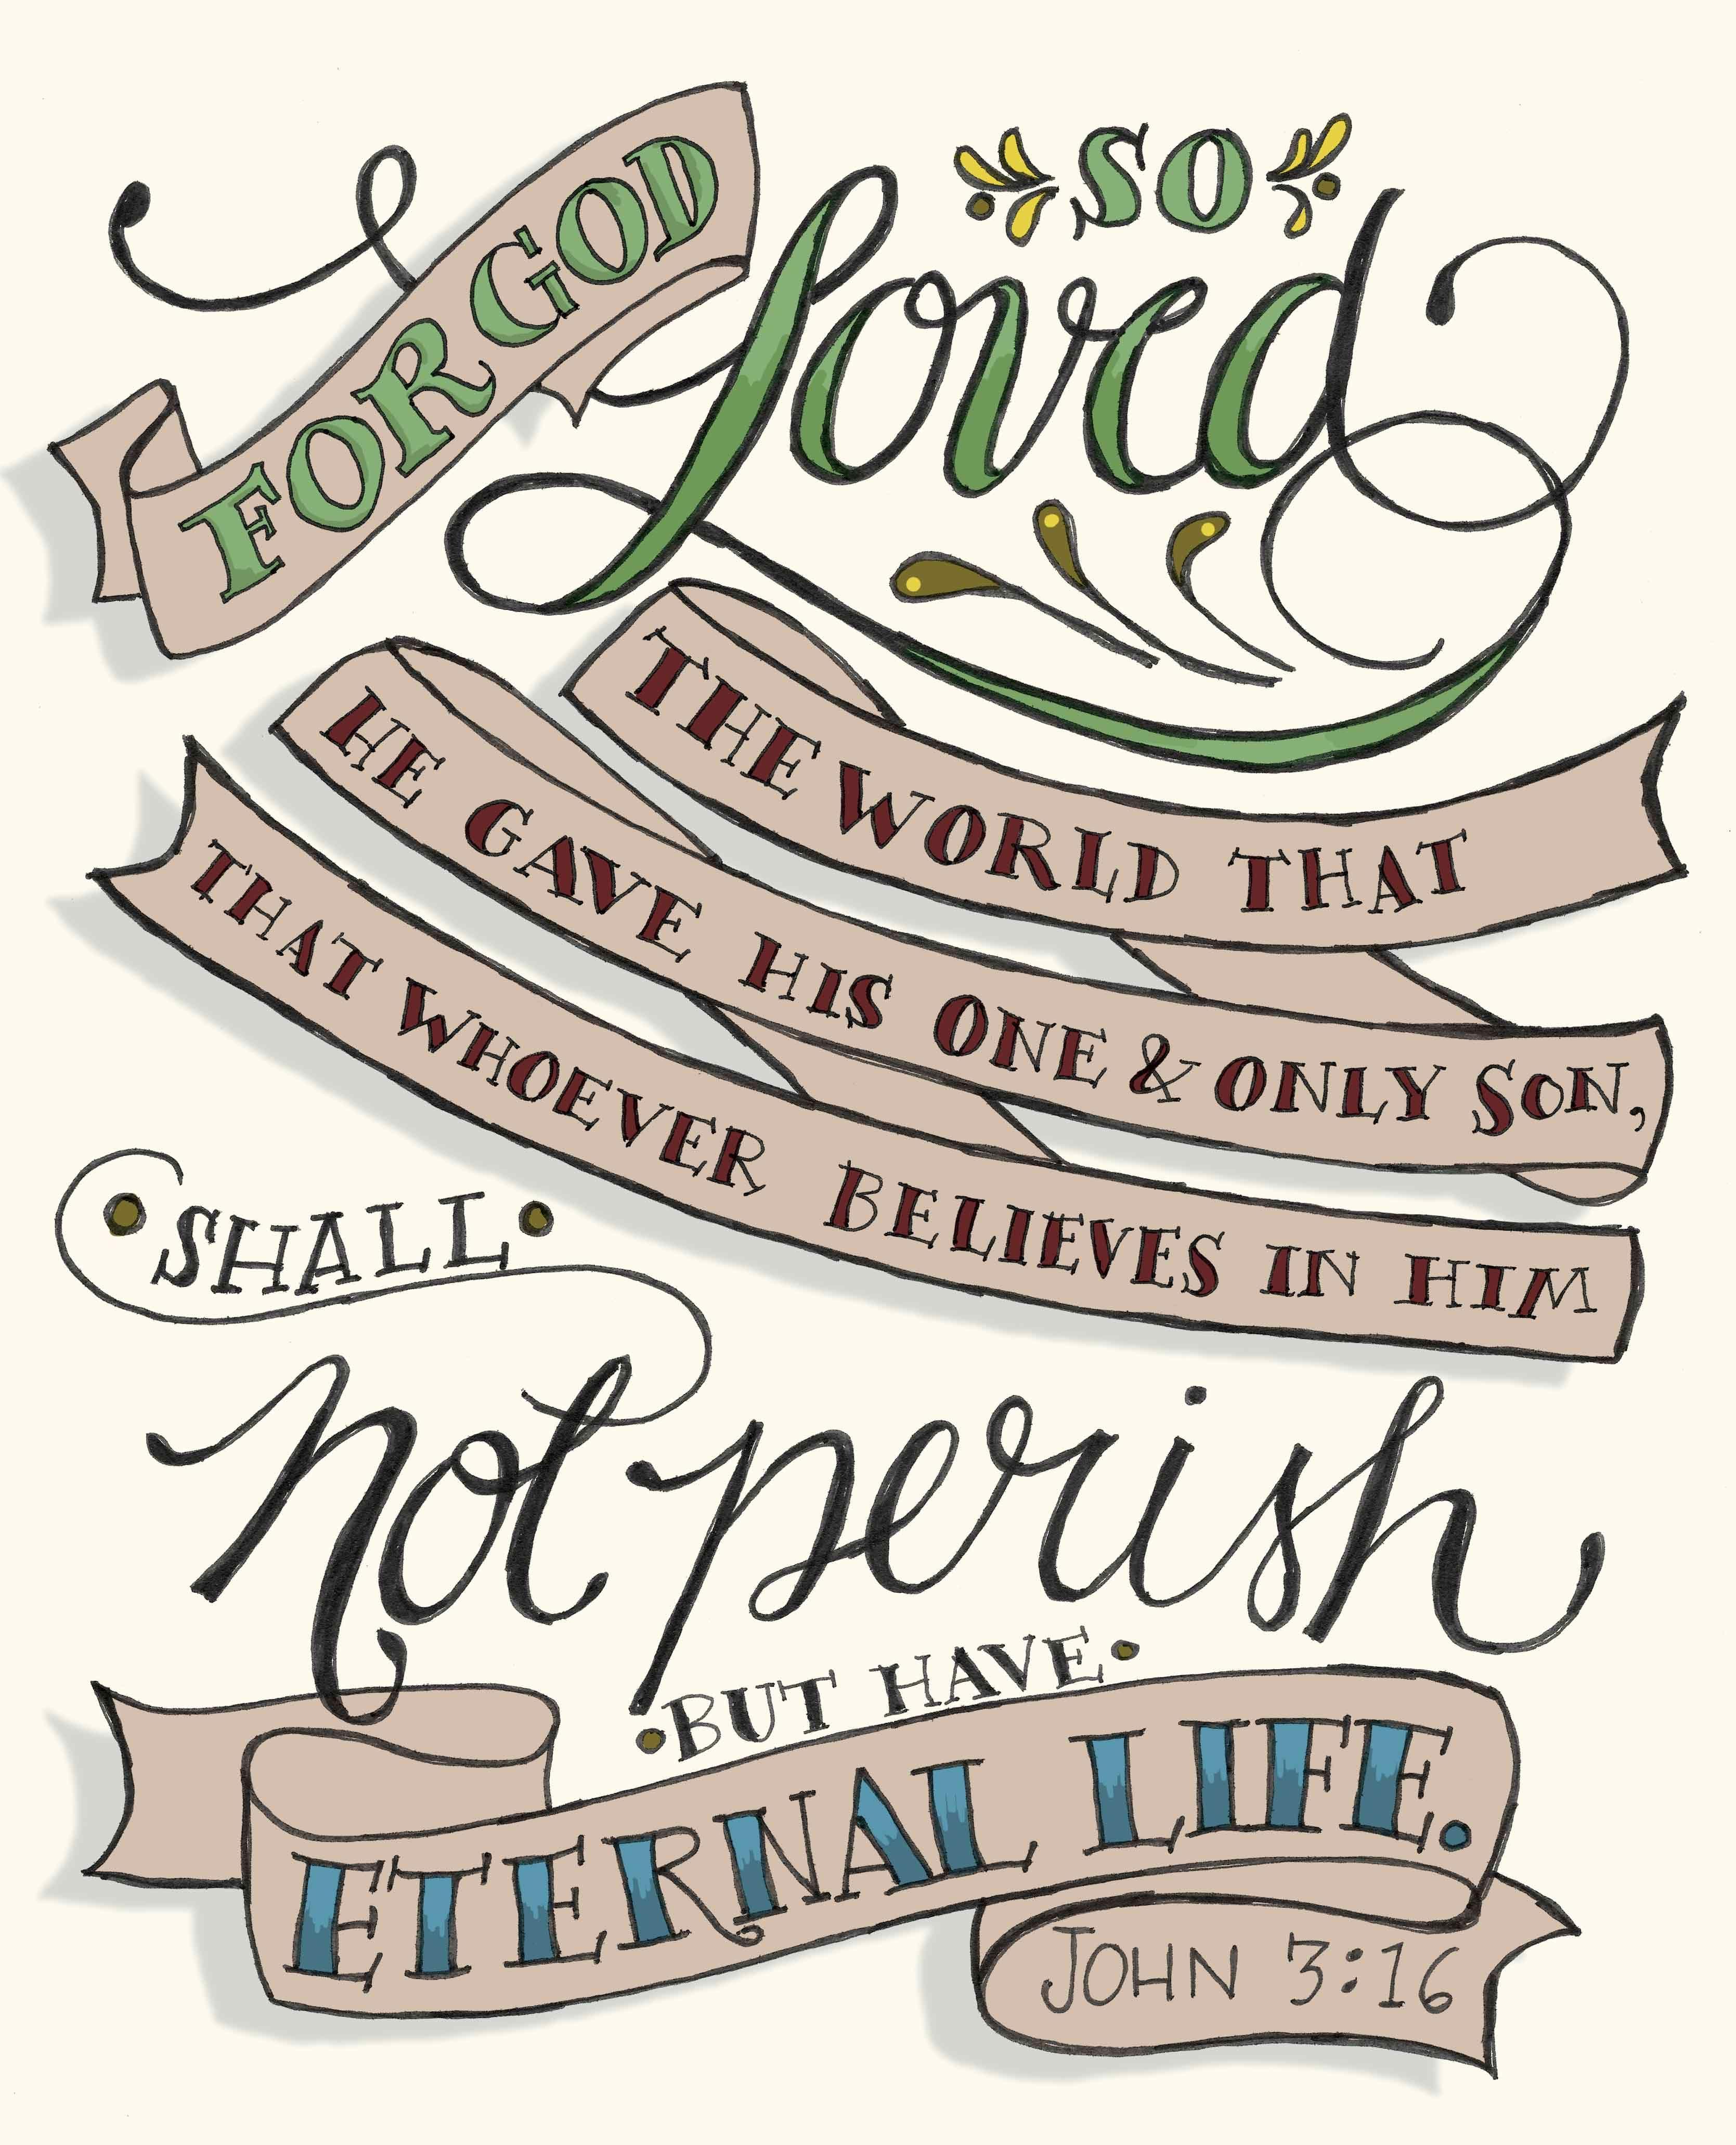 FOR GOD
SO
loved
THE WORLD THAT
HE GAVE HIS ONE & ONLY SON,
THAT WHOEVER BELIEVES IN HIM
SHALL
not perish
BUT HAVE
ETERNAL LIFE.
JOHN 3:16